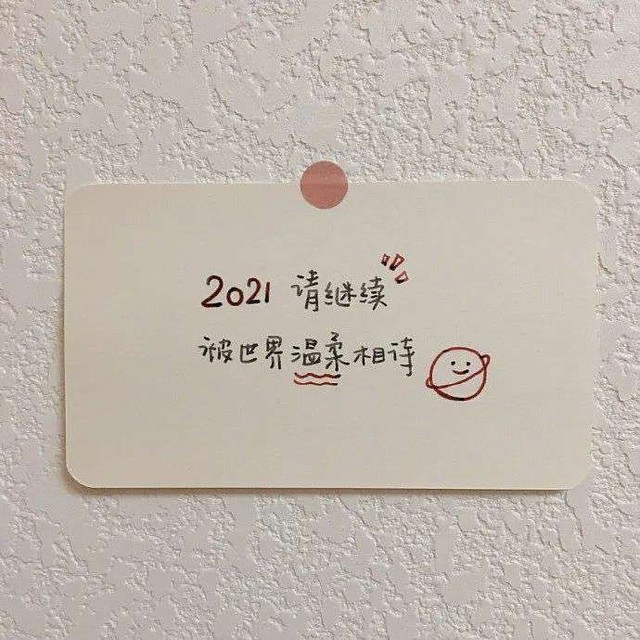 2021 请继续
被世界温柔相待